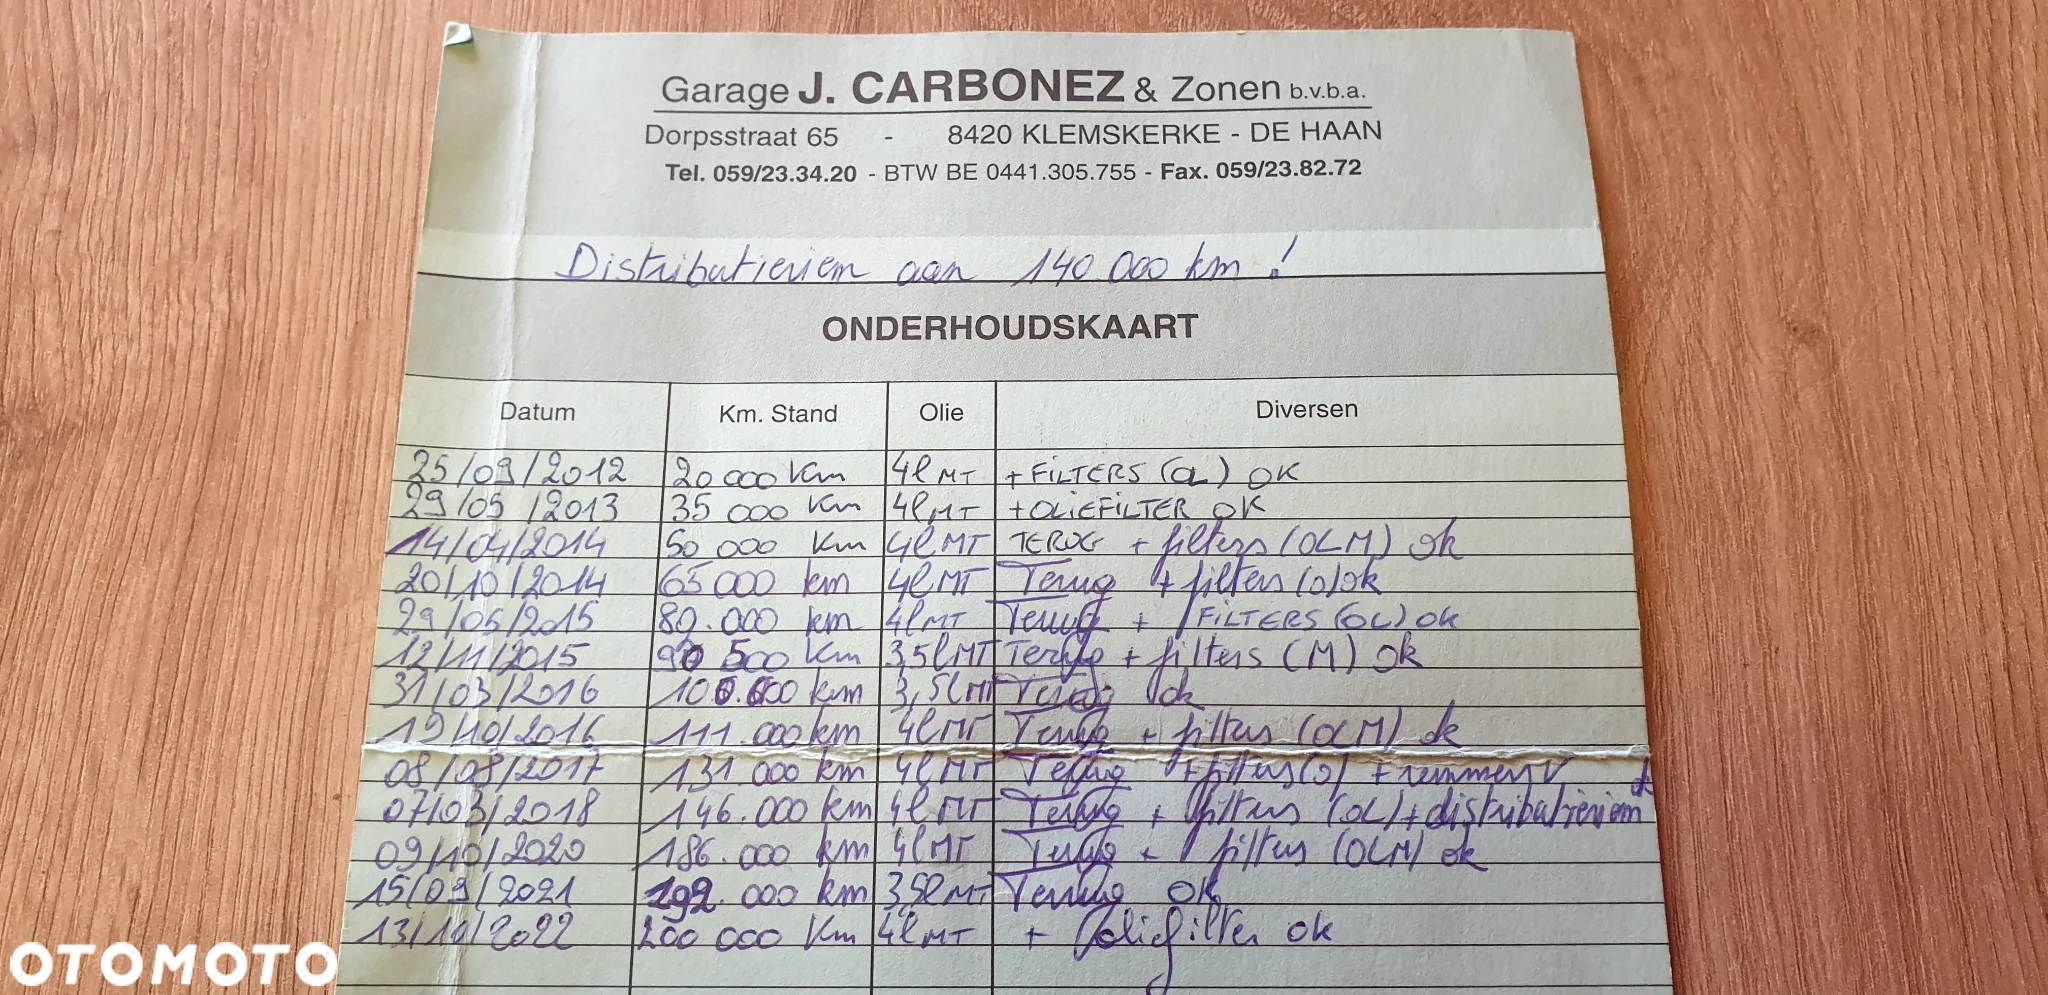 Garage J. CARBONEZ & Zonen b.v.b.a.
Dorpsstraat 65 - 8420 KLEMSKERKE - DE HAAN
Tel. 059/23.34.20 - BTW BE 0441.305.755 - Fax. 059/23.82.72
Distributieriem aan 140 000 km!
ONDERHOUDSKAART
Datum Km. Stand Olie Diversen
25/09/2012 20 000 Km 4l MT + FILTERS (OL) OK
29/05/2013 35 000 Km 4l MT + OLIEFILTER OK
14/04/2014 50 000 Km 4l MT TERUG + filters (OLM) ok
20/10/2014 65 000 km 4l MT Terug + filters (O) ok
29/05/2015 80.000 km 4l MT Terug + FILTERS (OL) ok
12/11/2015 90 500 Km 3,5l MT Terug + filters (M) ok
31/03/2016 100.000 km 3,5l MT Terug ok
19/10/2016 111.000 km 4l MT Terug + filters (OLM) ok
08/08/2017 131 000 km 4l MT Terug + filters (O) + remmen V ok
07/03/2018 146.000 km 4l MT Terug + filters (OL) + distributieriem
09/10/2020 186.000 km 4l MT Terug + filters (OLM) ok
15/09/2021 192.000 km 3,5l MT Terug OK
13/10/2022 200 000 Km 4l MT + Oliefilter ok
OTOMOTO